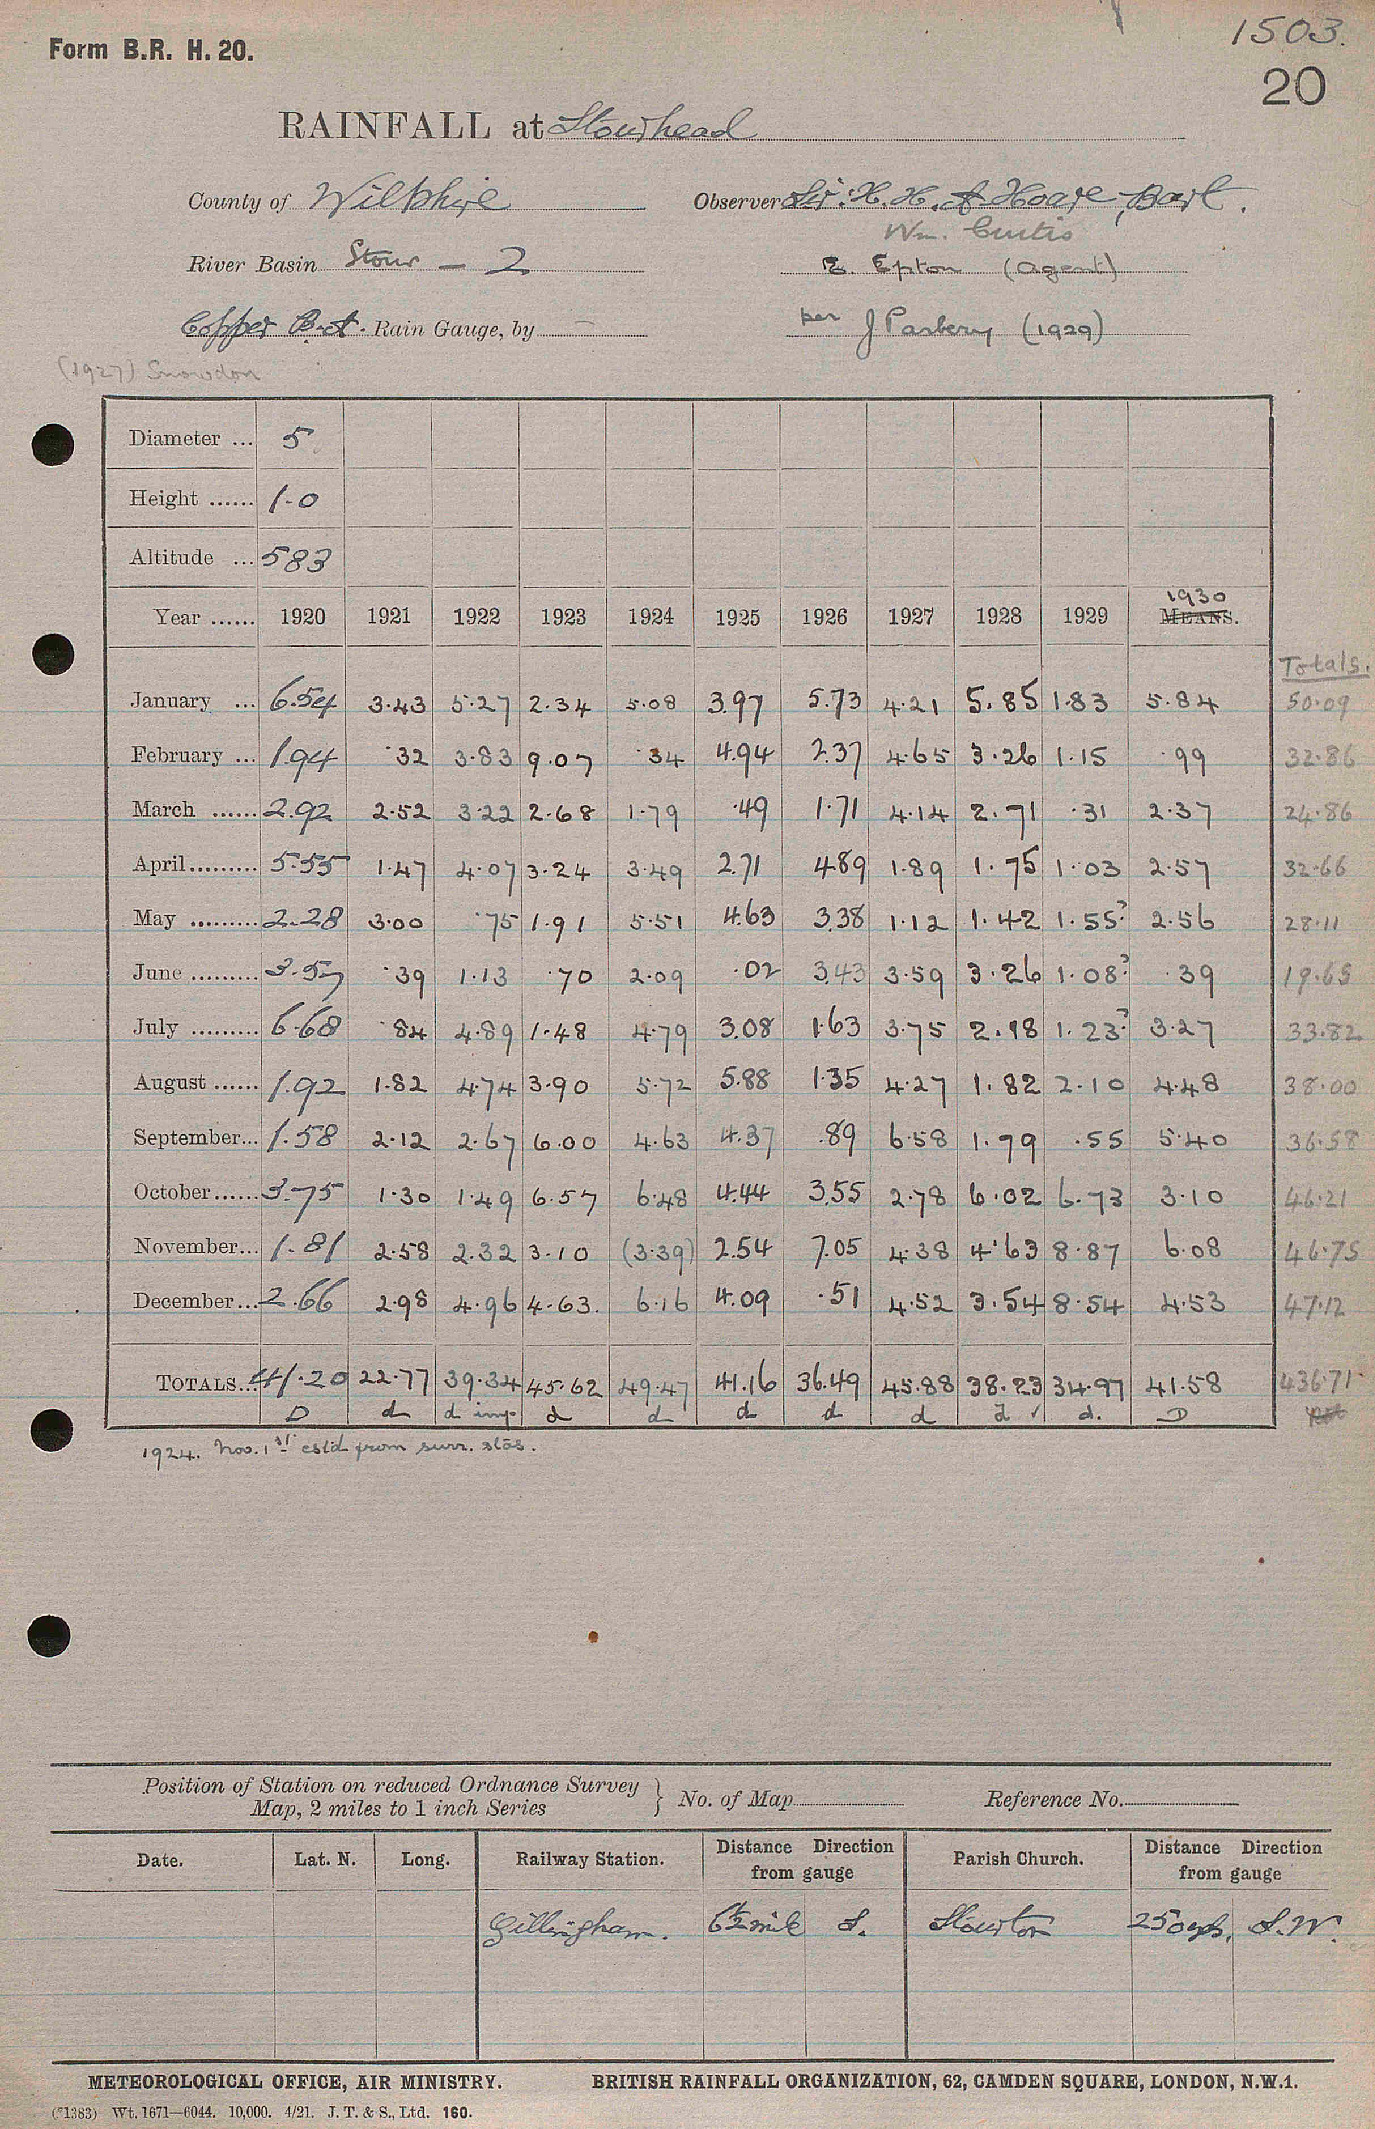 1503.
Form B.R. H. 20.
20
RAINFALL at Stourhead
County of Wiltshire Observer Sir. H. H. A Hoare, Bart.
Wm. Curtis
River Basin Stour - 2 E Epton (agent)
Copper Rain Gauge, by — per J Parbery (1929)
(1927) Snowdon
Diameter ... 5
Height ...... 1-0
Altitude ... 583
Year ...... 1920 1921 1922 1923 1924 1925 1926 1927 1928 1929 1930 MEANS.
Totals.
January ... 6.54 3.43 5.27 2.34 5.08 3.97 5.73 4.21 5.85 1.83 5.84 50.09
February ... 1.94 .32 3.83 9.07 .34 4.94 2.37 4.65 3.26 1.15 .99 32.86
March ...... 2.92 2.52 3.22 2.68 1.79 .49 1.71 4.14 2.71 .31 2.37 24.86
April......... 5.55 1.47 4.07 3.24 3.49 2.71 4.89 1.89 1.75 1.03 2.57 32.66
May ......... 2.28 3.00 .75 1.91 5.51 4.63 3.38 1.12 1.42 1.55? 2.56 28.11
June ......... 3.57 .39 1.13 .70 2.09 .02 3.43 3.59 3.26 1.08? .39 19.65
July ......... 6.68 .84 4.89 1.48 4.79 3.08 1.63 3.75 2.18 1.23? 3.27 33.82
August ...... 1.92 1.82 4.74 3.90 5.72 5.88 1.35 4.27 1.82 2.10 4.48 38.00
September... 1.58 2.12 2.67 6.00 4.63 4.37 .89 6.58 1.79 .55 5.40 36.58
October...... 3.75 1.30 1.49 6.57 6.48 4.44 3.55 2.78 6.02 6.73 3.10 46.21
November... 1.81 2.58 2.32 3.10 (3.39) 2.54 7.05 4.38 4.63 8.87 6.08 46.75
December... 2.66 2.98 4.96 4.63. 6.16 4.09 .51 4.52 3.54 8.54 4.53 47.12
TOTALS... 41.20 22.77 39.34 45.62 49.47 41.16 36.49 45.88 38.23 34.97 41.58 436.71
D d d imp d d d d d d ✓ d. D
1924. Nov. 1st estd from surr. stns.
Position of Station on reduced Ordnance Survey Map, 2 miles to 1 inch Series } No. of Map Reference No.
Date. Lat. N. Long. Railway Station. Distance Direction from gauge Parish Church. Distance Direction from gauge
Gillingham. 6½ mile S. Stourton 250 yds. S.W.
METEOROLOGICAL OFFICE, AIR MINISTRY. BRITISH RAINFALL ORGANIZATION, 62, CAMDEN SQUARE, LONDON, N.W.1.
(*1383) Wt. 1671—6044. 10,000. 4/21. J. T. & S., Ltd. 160.